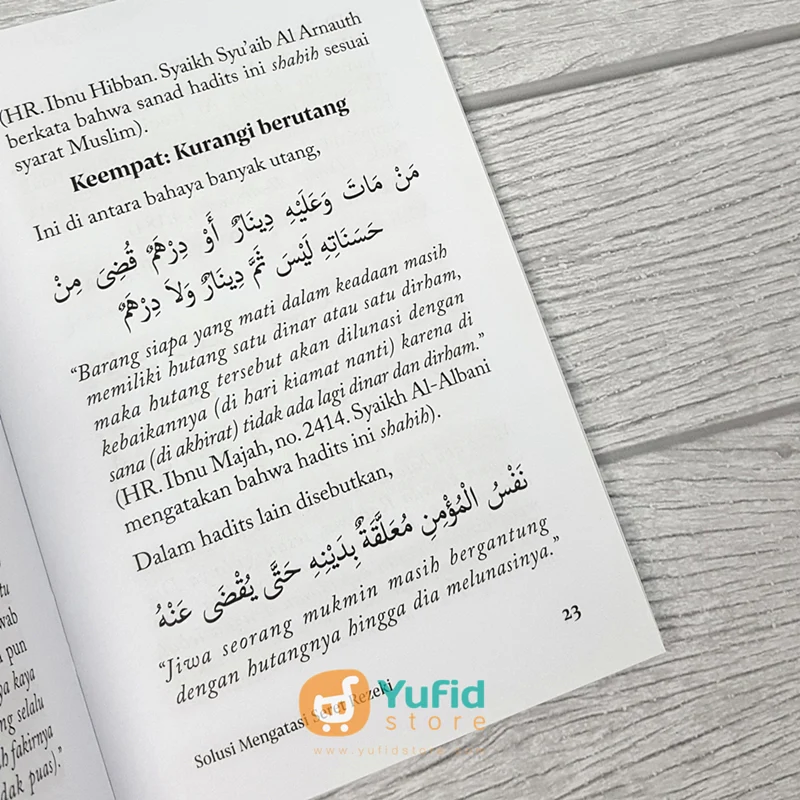 (HR. Ibnu Hibban. Syaikh Syu'aib Al Arnauth
berkata bahwa sanad hadits ini shahih sesuai
syarat Muslim).
Keempat: Kurangi berutang
Ini di antara bahaya banyak utang,
مَنْ مَاتَ وَعَلَيْهِ دِينَارٌ أَوْ دِرْهَمٌ قُضِىَ مِنْ
حَسَنَاتِهِ لَيْسَ ثَمَّ دِينَارٌ وَلاَ دِرْهَمٌ
“Barang siapa yang mati dalam keadaan masih
memiliki hutang satu dinar atau satu dirham,
maka hutang tersebut akan dilunasi dengan
kebaikannya (di hari kiamat nanti) karena di
sana (di akhirat) tidak ada lagi dinar dan dirham.”
(HR. Ibnu Majah, no. 2414. Syaikh Al-Albani
mengatakan bahwa hadits ini shahih).
Dalam hadits lain disebutkan,
نَفْسُ الْمُؤْمِنِ مُعَلَّقَةٌ بِدَيْنِهِ حَتَّى يُقْضَى عَنْهُ
“Jiwa seorang mukmin masih bergantung
dengan hutangnya hingga dia melunasinya.”
23
Solusi Mengatasi Seret Rezeki
pun
kaya
selalu
fakirnya
puas).”
Yufid
store
www.yufidstore.com